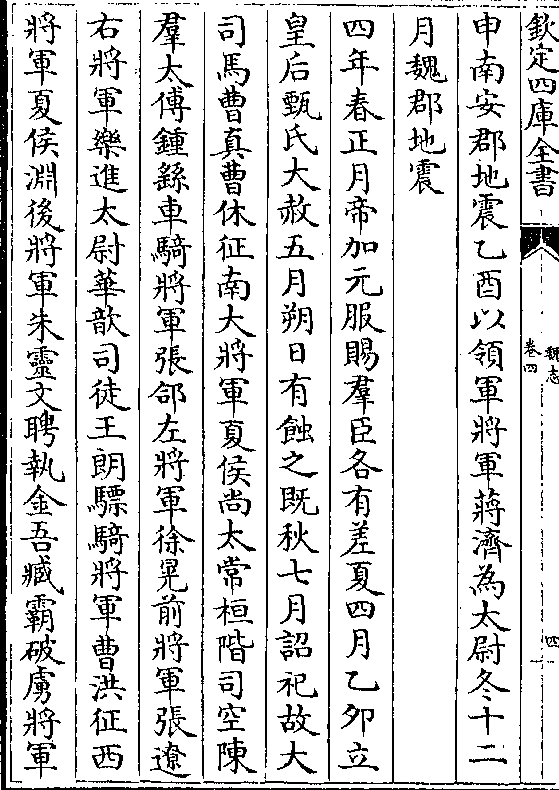 欽定四庫全書
魏志
卷四
四
申南安郡地震乙酉以領軍將軍蔣濟為太尉冬十二
月魏郡地震
四年春正月帝加元服賜羣臣各有差夏四月乙卯立
皇后甄氏大赦五月朔日有蝕之既秋七月詔祀故大
司馬曹真曹休征南大將軍夏侯尚太常桓階司空陳
羣太傅鍾繇車騎將軍張郃左將軍徐晃前將軍張遼
右將軍樂進太尉華歆司徒王朗驃騎將軍曹洪征西
將軍夏侯淵後將軍朱靈文聘執金吾臧霸破虜將軍